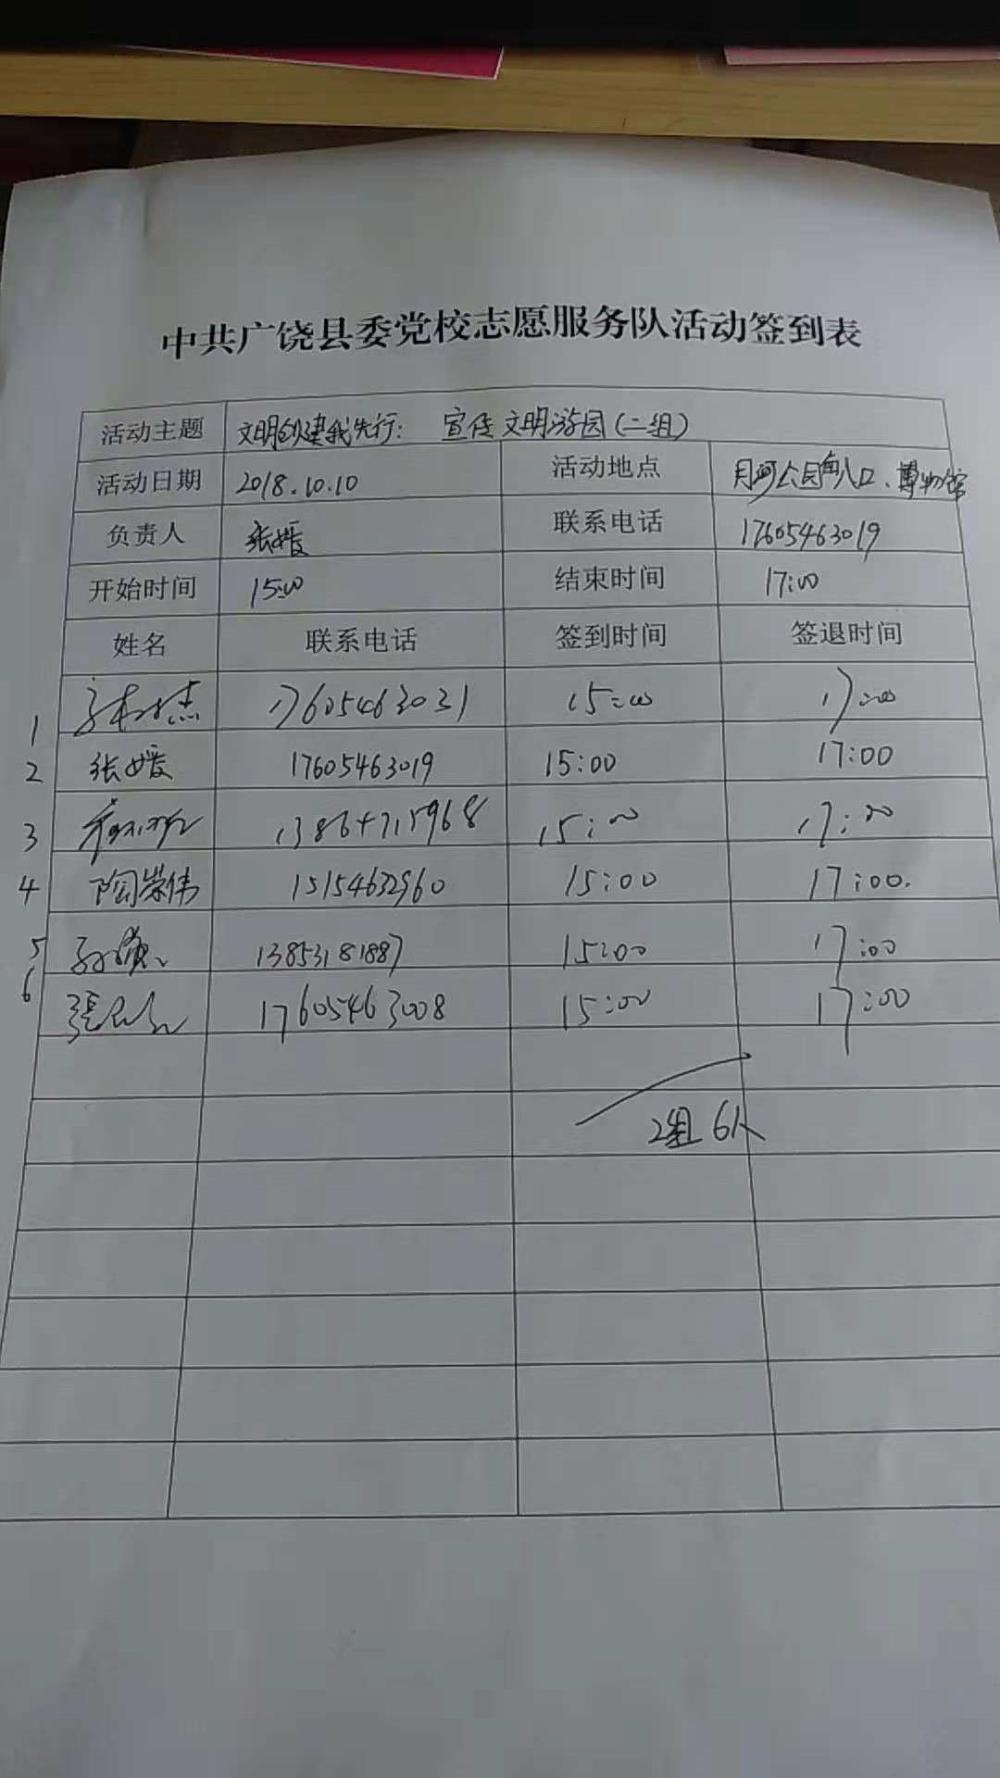 中共广饶县委党校志愿服务队活动签到表
活动主题 文明创建我先行： 宣传文明游园（二组）
活动日期 2018.10.10 活动地点 月河公园南入口、博物馆
负责人 张媛 联系电话 17605463019
开始时间 15:00 结束时间 17:00
姓名 联系电话 签到时间 签退时间
1 17605463031 15:00 17:00
2 张媛 17605463019 15:00 17:00
3 13864715968 15:00 17:00
4 陶荣伟 15154632960 15:00 17:00
5 13853181887 15:00 17:00
6 17605463008 15:00 17:00
2组 6人